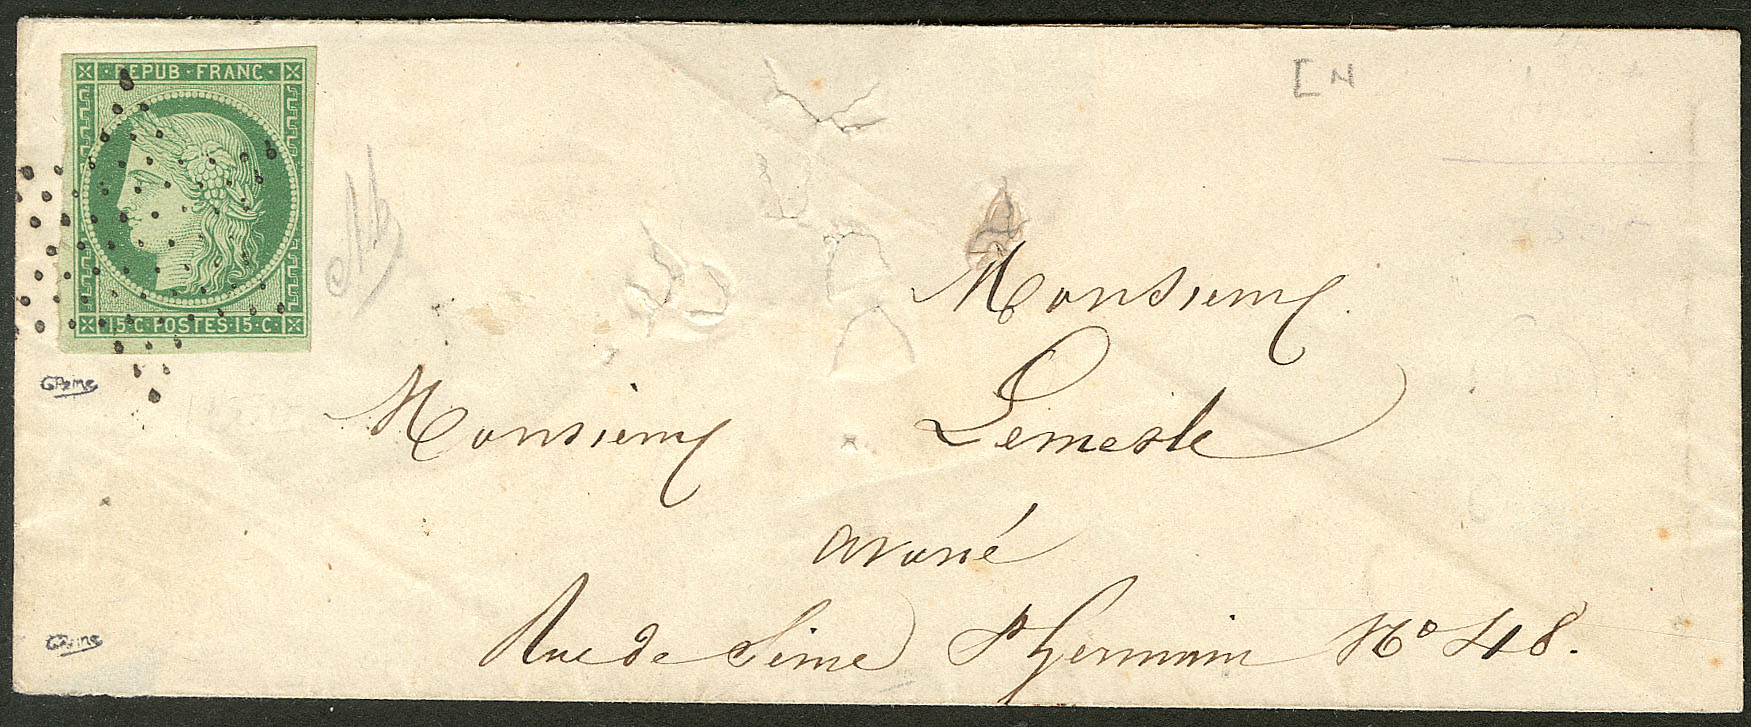 REPUB · FRANC ·
15 · C · POSTES · 15 · C ·
Monsieur
Monsieur
Lemesle
avoué
Rue de Seine St Germain No 48.